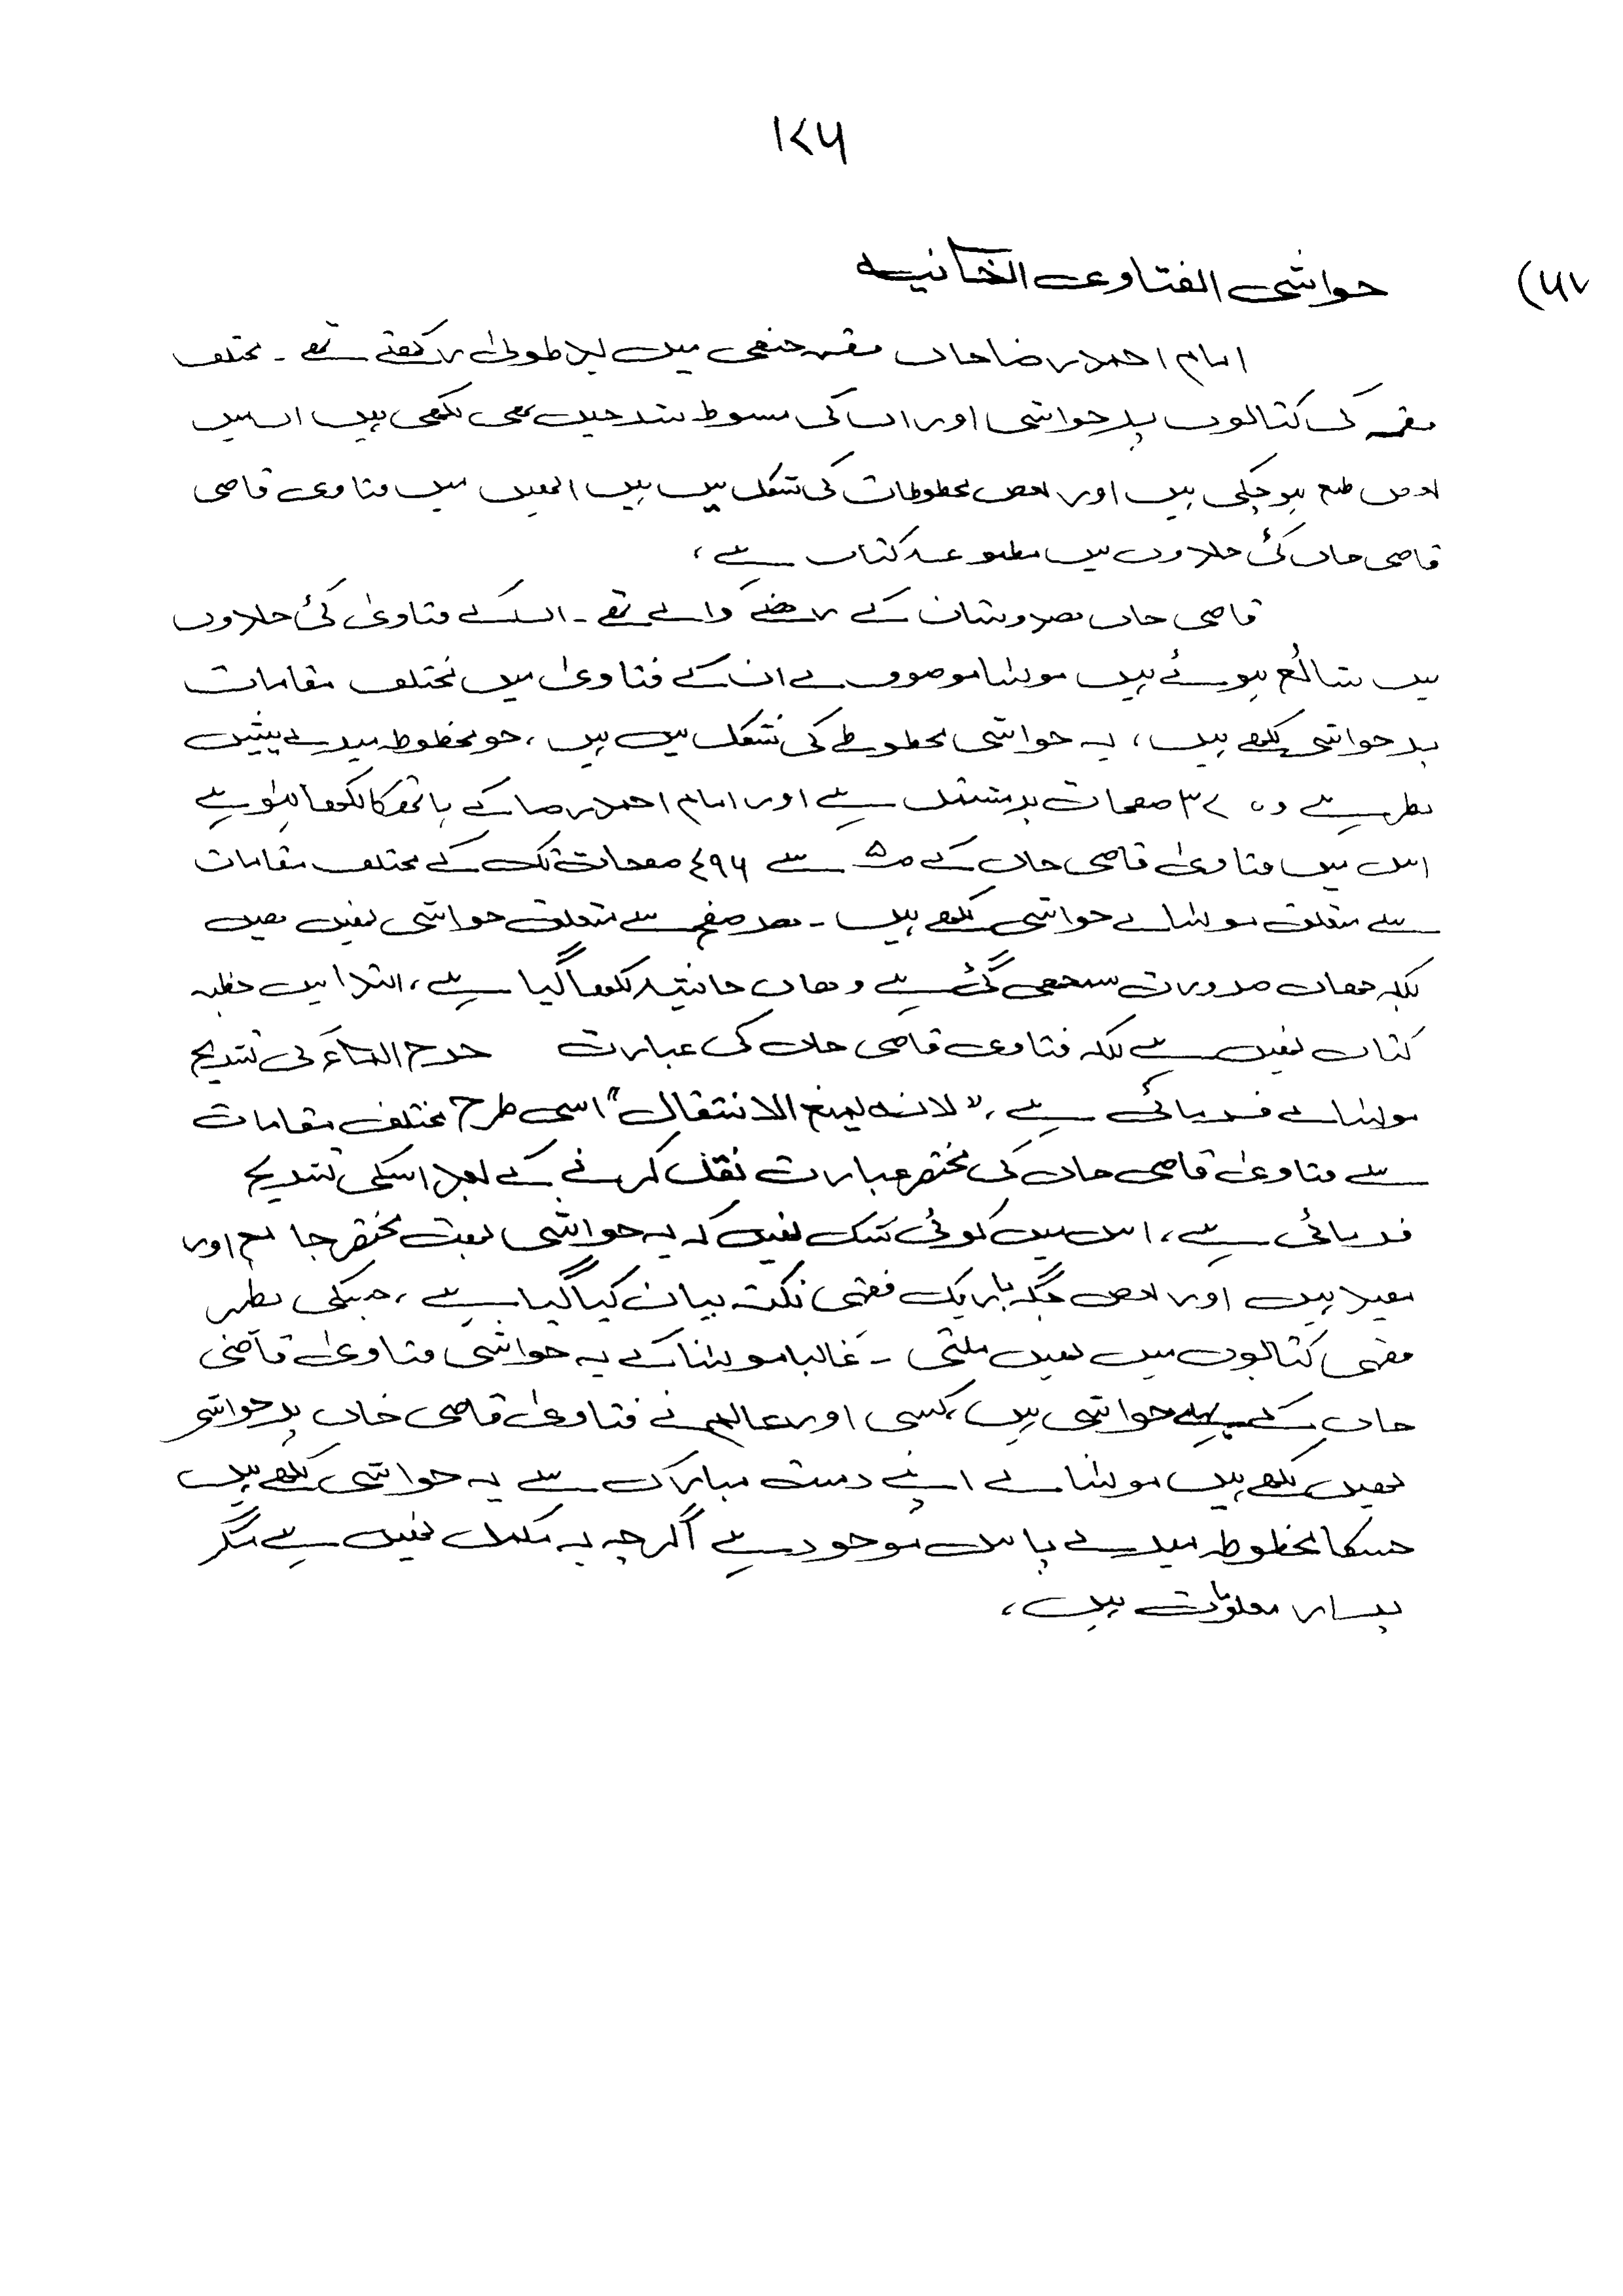 ۱۷۶
۶۷) حواشی الفتاوی الخانیہ
امام احمد رضا خاں فقہ حنفی میں ید طولیٰ رکھتے تھے ۔ مختلف
فقہ کی کتابوں پر حواشی اور ان کی مبسوط شرحیں بھی لکھی ہیں ان میں
بعض طبع ہو چکی ہیں اور بعض مخطوطات کی شکل میں ہیں انھیں میں فتاوی قاضی
قاضی خاں کئ جلدوں میں مطبوعہ کتاب ہے ،
قاضی خاں کے رھنے والے تھے ۔ انکے فتاویٰ کئ جلدوں
میں شائع ہوئے ہیں مولٰنا موصوف نے ان کے فتاویٰ میں مختلف مقامات
پر حواشی لکھے ہیں ، یہ حواشی مخطوطے کی شکل میں ہیں ، جو مخطوطہ میرے پیش
نظر ہے وہ ۳۷ صفحات پر مشتمل ہے اور امام احمد رضا کے ہاتھ کا لکھا ہوا ہے
اس میں فتاویٰ قاضی خاں کے ص۵ سے ۴۹۶ صفحات تک کے مختلف مقامات
سے متعلق مولٰنا نے حواشی لکھے ہیں ۔ ھر صفحہ سے متعلق حواشی نھیں ھیں
بلکہ جھاں ضرورت سمجھی گئ ہے وھاں حاشیہ لکھا گیا ہے ، ابتدا میں خطبہ
کتاب نھیں ہے بلکہ فتاوی قاضی خاں کی عبارت کی تشریح
مولٰنا نے فرمائی ہے ، " لانه یمنع الانتقال " اسی طرح مختلف مقامات
سے فتاویٰ قاضی خاں کی مختصر عبارت نقل کرنے کے بعد اسکی تشریح
فرمائی ہے ، اس میں کوئی شک نھیں کہ یہ حواشی بھت مختصر جامع اور
مفید ہیں اور بعض جگہ باریک فقھی نکتہ بیان کیا گیا ہے ، جسکی نظیر
فقھی کتابوں میں نھیں ملتی ۔ غالبا مولٰنا کے یہ حواشی فتاویٰ قاضی
خاں کے پہلے حواشی ہیں ، کسی اور عالم نے فتاویٰ قاضی خاں پر حواشی
نھیں لکھے ہیں مولٰنا نے اپنے دست مبارک سے یہ حواشی لکھے ہیں
جسکا مخطوطہ میرے پاس موجود ہے اگرچہ یہ مکمل نھیں ہے مگر
معلومات ہیں ،